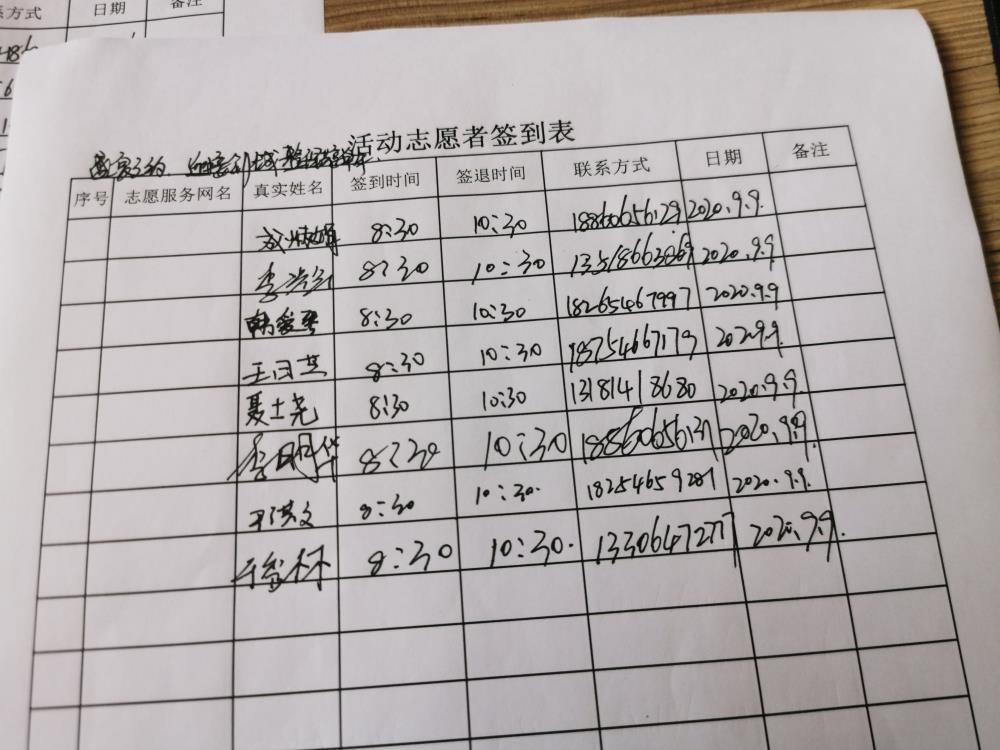 系方式 日期 备注
活动志愿者签到表
序号 志愿服务网名 真实姓名 签到时间 签退时间 联系方式 日期 备注
8:30 10:30 18860656129 2020.9.9.
8:30 10:30 13518663869 2020.9.9
8:30 10:30 18265467997 2020.9.9
王日芸 8:30 10:30 18754667179 202.9.9.
聂士尧 8:30 10:30 13181418680 2020.9.9.
李明华 8:30 10:30 18860656131 2020.9.9.
8:30 10:30. 18254659287 2020.9.9.
8:30 10:30. 13306472777 2020.9.9.